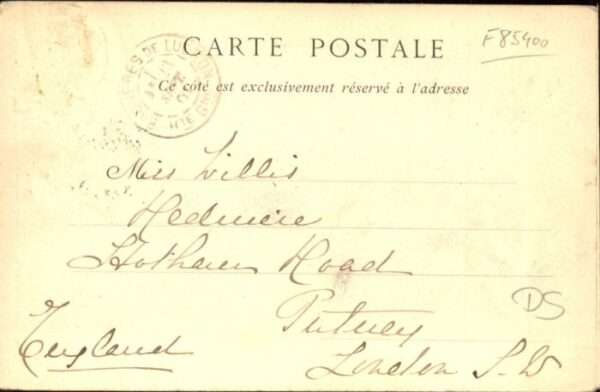 F85400
CARTE POSTALE
Ce côté est exclusivement réservé à l'adresse
Miss Willis
Hedmere
Hotham Road
Putney
England
London S.W
DS